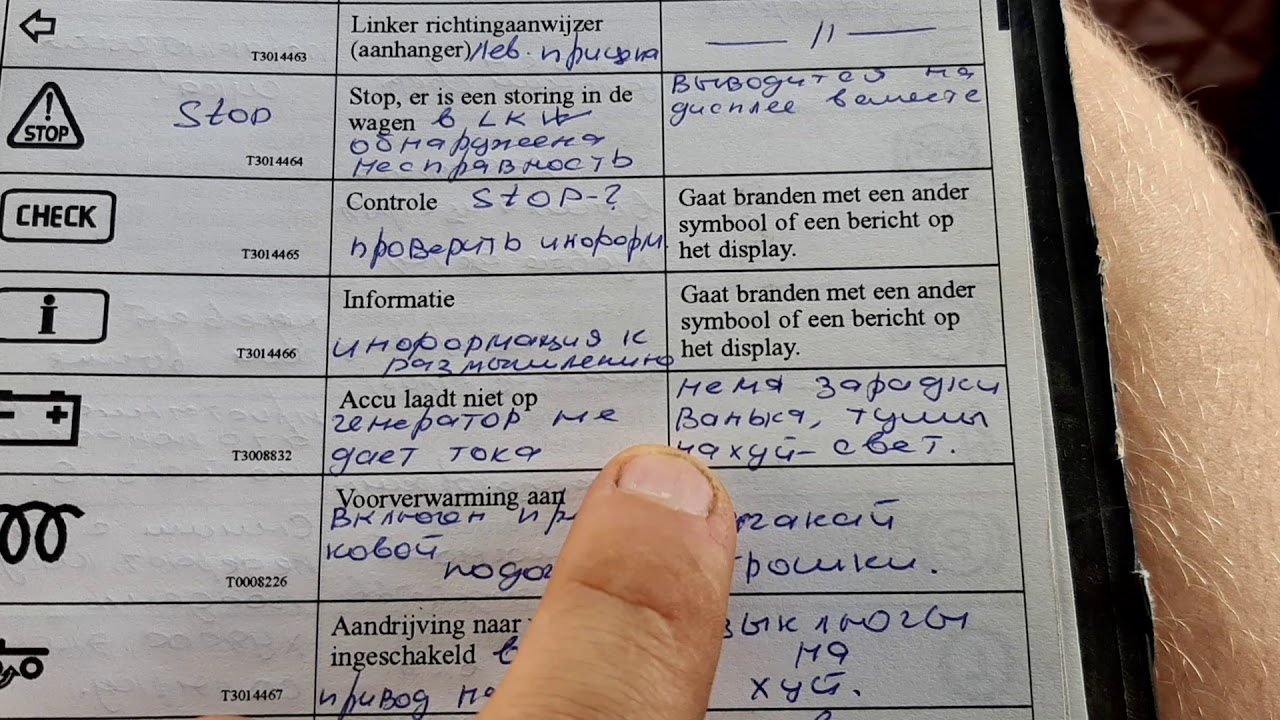 Linker richtingaanwijzer
(aanhanger) лев. прицепа
T3014463
— 11 —
STOP
Stop
T3014464
Stop, er is een storing in de
wagen в LKW
обнаружена
несправность
выводится на
дисплее вместе
CHECK
T3014465
Controle STOP-?
проверить информ
Gaat branden met een ander
symbool of een bericht op
het display.
i
T3014466
Informatie
информация к
размышлению
Gaat branden met een ander
symbool of een bericht on
het display.
T3008832
Accu laadt niet op
генератор не
дает тока
немя зарадки
Ванька, тушы
нахуй - свет.
T0008226
Voorverwarming aan
включен
ковой
трошки.
T3014467
Aandrijving naar
ingeschakeld
привод на
выключы
на
хуй.